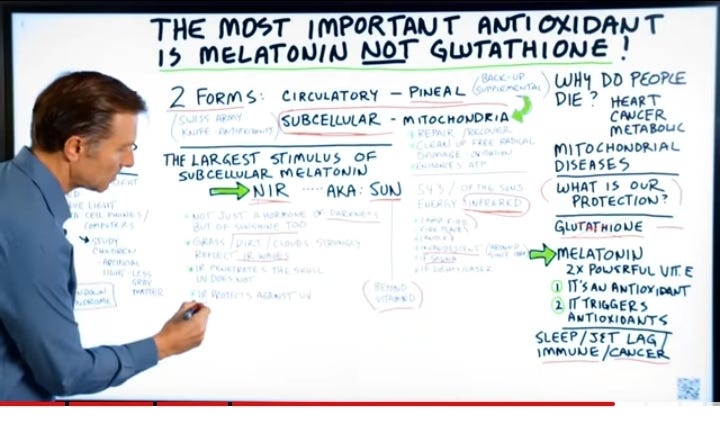 THE MOST IMPORTANT ANTIOXIDANT
IS MELATONIN NOT GLUTATHIONE!
2 FORMS: CIRCULATORY – PINEAL
(BACK-UP
SUPPLEMENTAL)
(SWISS ARMY
KNIFE - ANTIOXIDANTS)
SUBCELLULAR - MITOCHONDRIA
REPAIR/RECOVER
CLEAN UP FREE RADICAL
DAMAGE - OXIDATION
ENHANCES ATP
THE LARGEST STIMULUS OF
SUBCELLULAR MELATONIN
NIR ..... AKA: SUN
* NOT JUST A HORMONE OF DARKNESS
BUT OF SUNSHINE TOO
* GRASS/DIRT/CLOUDS STRONGLY
REFLECT IR WAVES
* IR PENETRATES THE SKULL
UV DOES NOT
* IR PROTECTS AGAINST UV
BEYOND
VITAMIN D
54% OF THE SUNS
ENERGY INFRARED
CAMP FIRE
FIRE PLACE
CANDLE
INCANDESCENT
IF SAUNA
LIGHT
CELL PHONES/
COMPUTERS
STUDY
CHILDREN
-ARTIFICIAL
LIGHT-LESS
GRAY
MATTER
WHY DO PEOPLE
DIE? HEART
CANCER
METABOLIC
MITOCHONDRIAL
DISEASES
(WHAT IS OUR
PROTECTION?)
GLUTATHIONE
MELATONIN
2X POWERFUL VIT.E
1 IT'S AN ANTIOXIDANT
2 IT TRIGGERS
ANTIOXIDANTS
SLEEP/JET LAG/
IMMUNE/CANCER